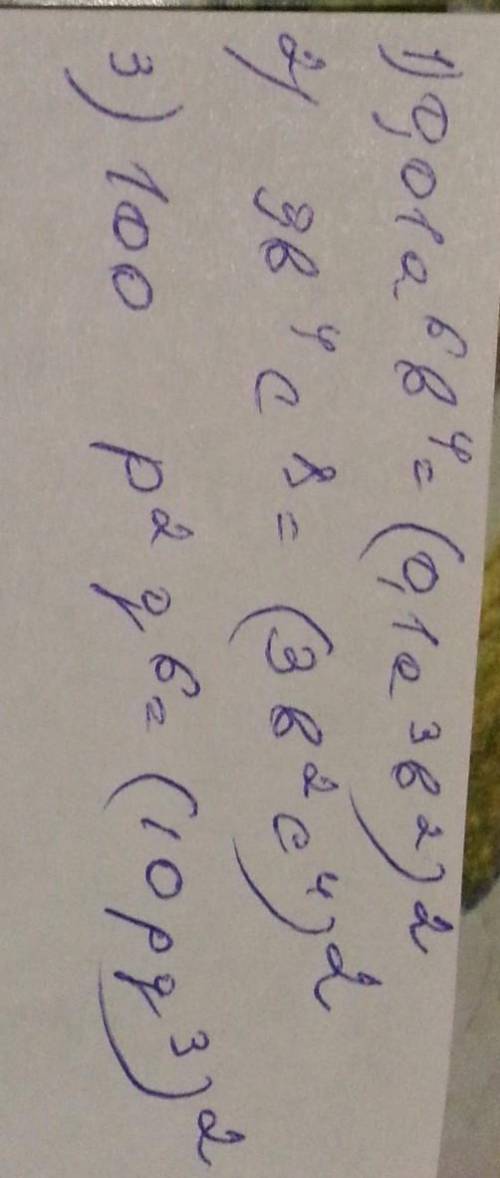 1) 0,01a⁶b⁴ = (0,1a³b²)²
2) 9b⁴c⁸ = (3b²c⁴)²
3) 100 p²q⁶ = (10pq³)²